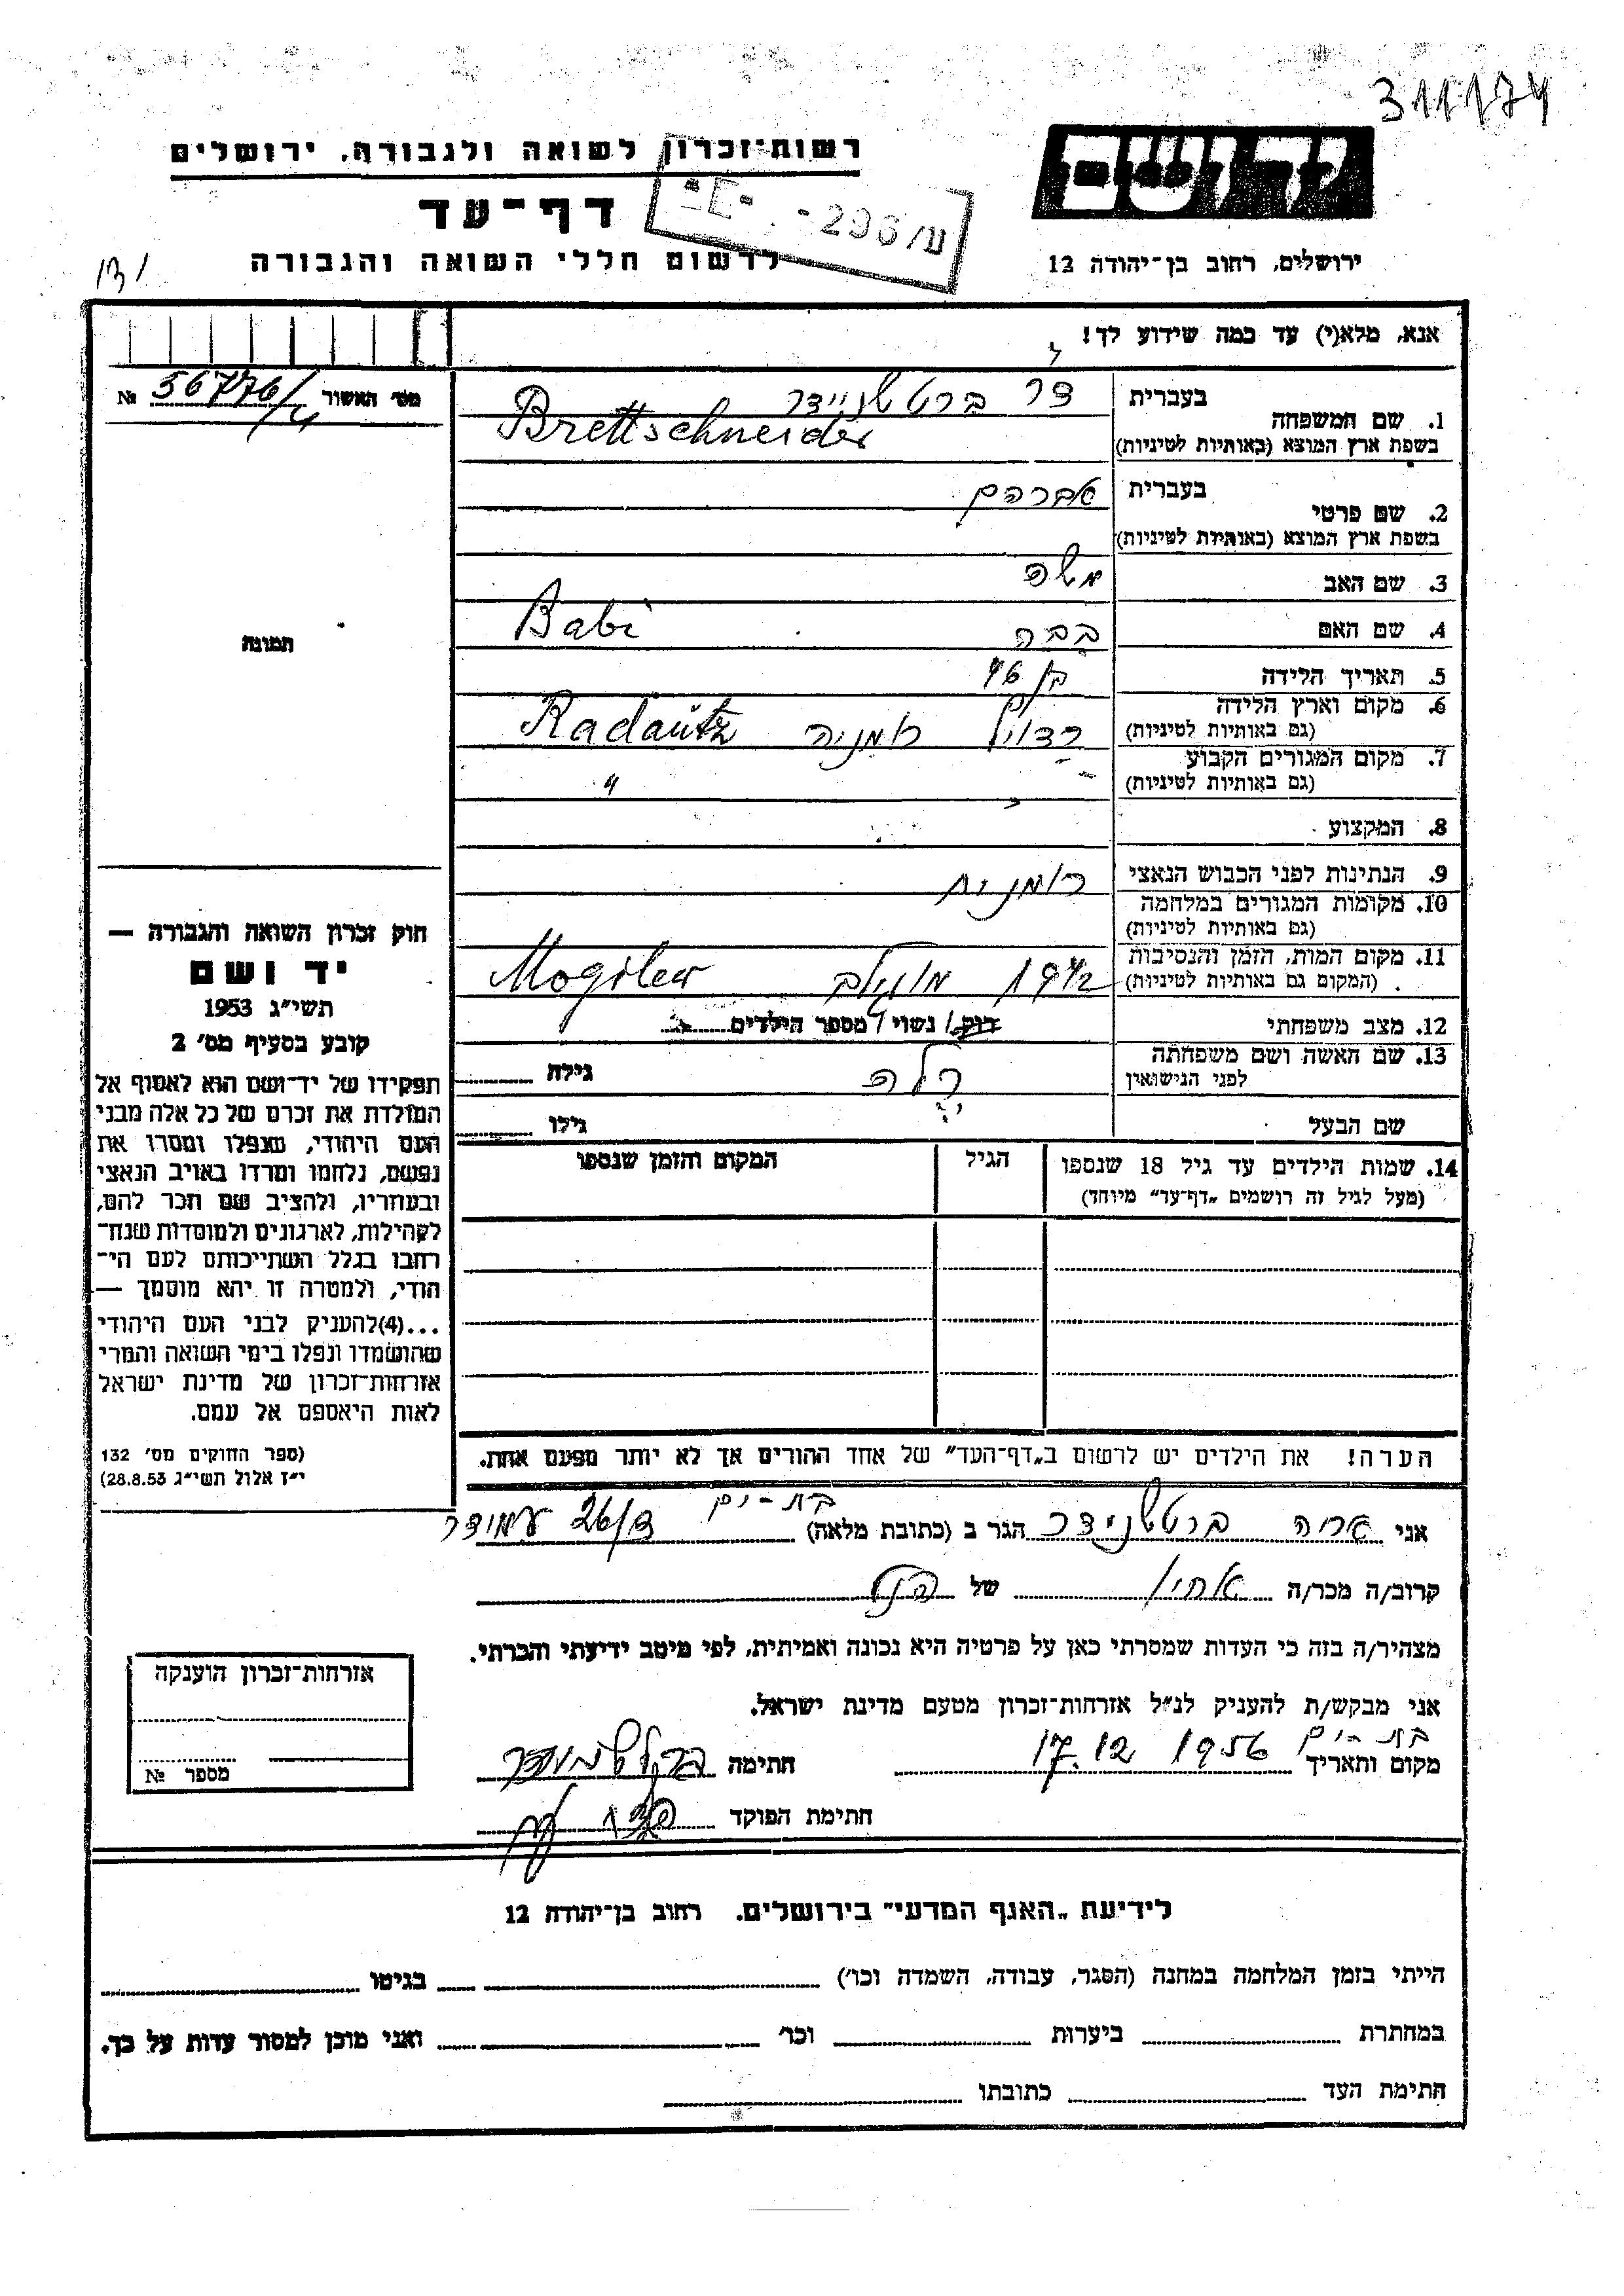 311174
רשות־זכרון לשואה ולגבורה, ירושלים
יד ושם
דף־עד
236/ע
לרשום חללי השואה והגבורה
ירושלים, רחוב בן־יהודה 12
אנא, מלא(י) עד כמה שידוע לך!
מס׳ האשור № 56776/4
1. שם המשפחה
בעברית דר ברטשניידר
בשפת ארץ המוצא (באותיות לטיניות) Brettschneider
2. שם פרטי
בעברית אברהם
בשפת ארץ המוצא (באותיות לטיניות)
3. שם האב משה
4. שם האם בבה Babi
5. תאריך הלידה בן 46
6. מקום וארץ הלידה
(גם באותיות לטיניות) רדויץ רומניה Radautz
7. מקום המגורים הקבוע
(גם באותיות לטיניות) "
8. המקצוע
9. הנתינות לפני הכבוש הנאצי רומנית
10. מקומות המגורים במלחמה
(גם באותיות לטיניות)
11. מקום המות, הזמן והנסיבות
(המקום גם באותיות לטיניות) 1942 מוגילב Mogilew
12. מצב משפחתי רוק / נשוי / מספר הילדים
13. שם האשה ושם משפחתה
לפני הנישואין גילה
שם הבעל גילו
14. שמות הילדים עד גיל 18 שנספו
(מעל לגיל זה רושמים „דף־עד״ מיוחד)
הגיל
המקום והזמן שנספו
הערה! את הילדים יש לרשום ב„דף־העד״ של אחד ההורים אך לא יותר מפעם אחת.
תמונה
חוק זכרון השואה והגבורה —
יד ושם
תשי״ג 1953
קובע בסעיף מס׳ 2
תפקידו של יד־ושם הוא לאסוף אל
המולדת את זכרם של כל אלה מבני
העם היהודי, שנפלו ומסרו את
נפשם, נלחמו ומרדו באויב הנאצי
ובעוזריו, ולהציב שם וזכר להם,
לקהילות, לארגונים ולמוסדות שנח־
רבו בגלל השתייכותם לעם הי־
הודי, ולמטרה זו יהא מוסמך —
...(4)להעניק לבני העם היהודי
שהושמדו ונפלו בימי השואה והמרי
אזרחות־זכרון של מדינת ישראל
לאות היאספם אל עמם.
(ספר החוקים מס׳ 132
י״ז אלול תשי״ג 28.8.53)
בת-ים
אני אריה ברטשניידר הגר ב (כתובת מלאה) עמידר 26/3
קרוב/ה מכר/ה אחיו של הנ״ל
מצהיר/ה בזה כי העדות שמסרתי כאן על פרטיה היא נכונה ואמיתית, לפי מיטב ידיעתי והכרתי.
אני מבקש/ת להעניק לנ״ל אזרחות־זכרון מטעם מדינת ישראל.
מקום ותאריך בת-ים 17.12 1956 חתימה
חתימת הפוקד
אזרחות־זכרון הוענקה
מספר №
לידיעת „האגף המדעי״ בירושלים. רחוב בן־יהודה 12
הייתי בזמן המלחמה במחנה (הסגר, עבודה, השמדה וכו׳) בגיטו
במחתרת ביערות וכו׳ ואני מוכן למסור עדות על כך.
חתימת העד כתובתו